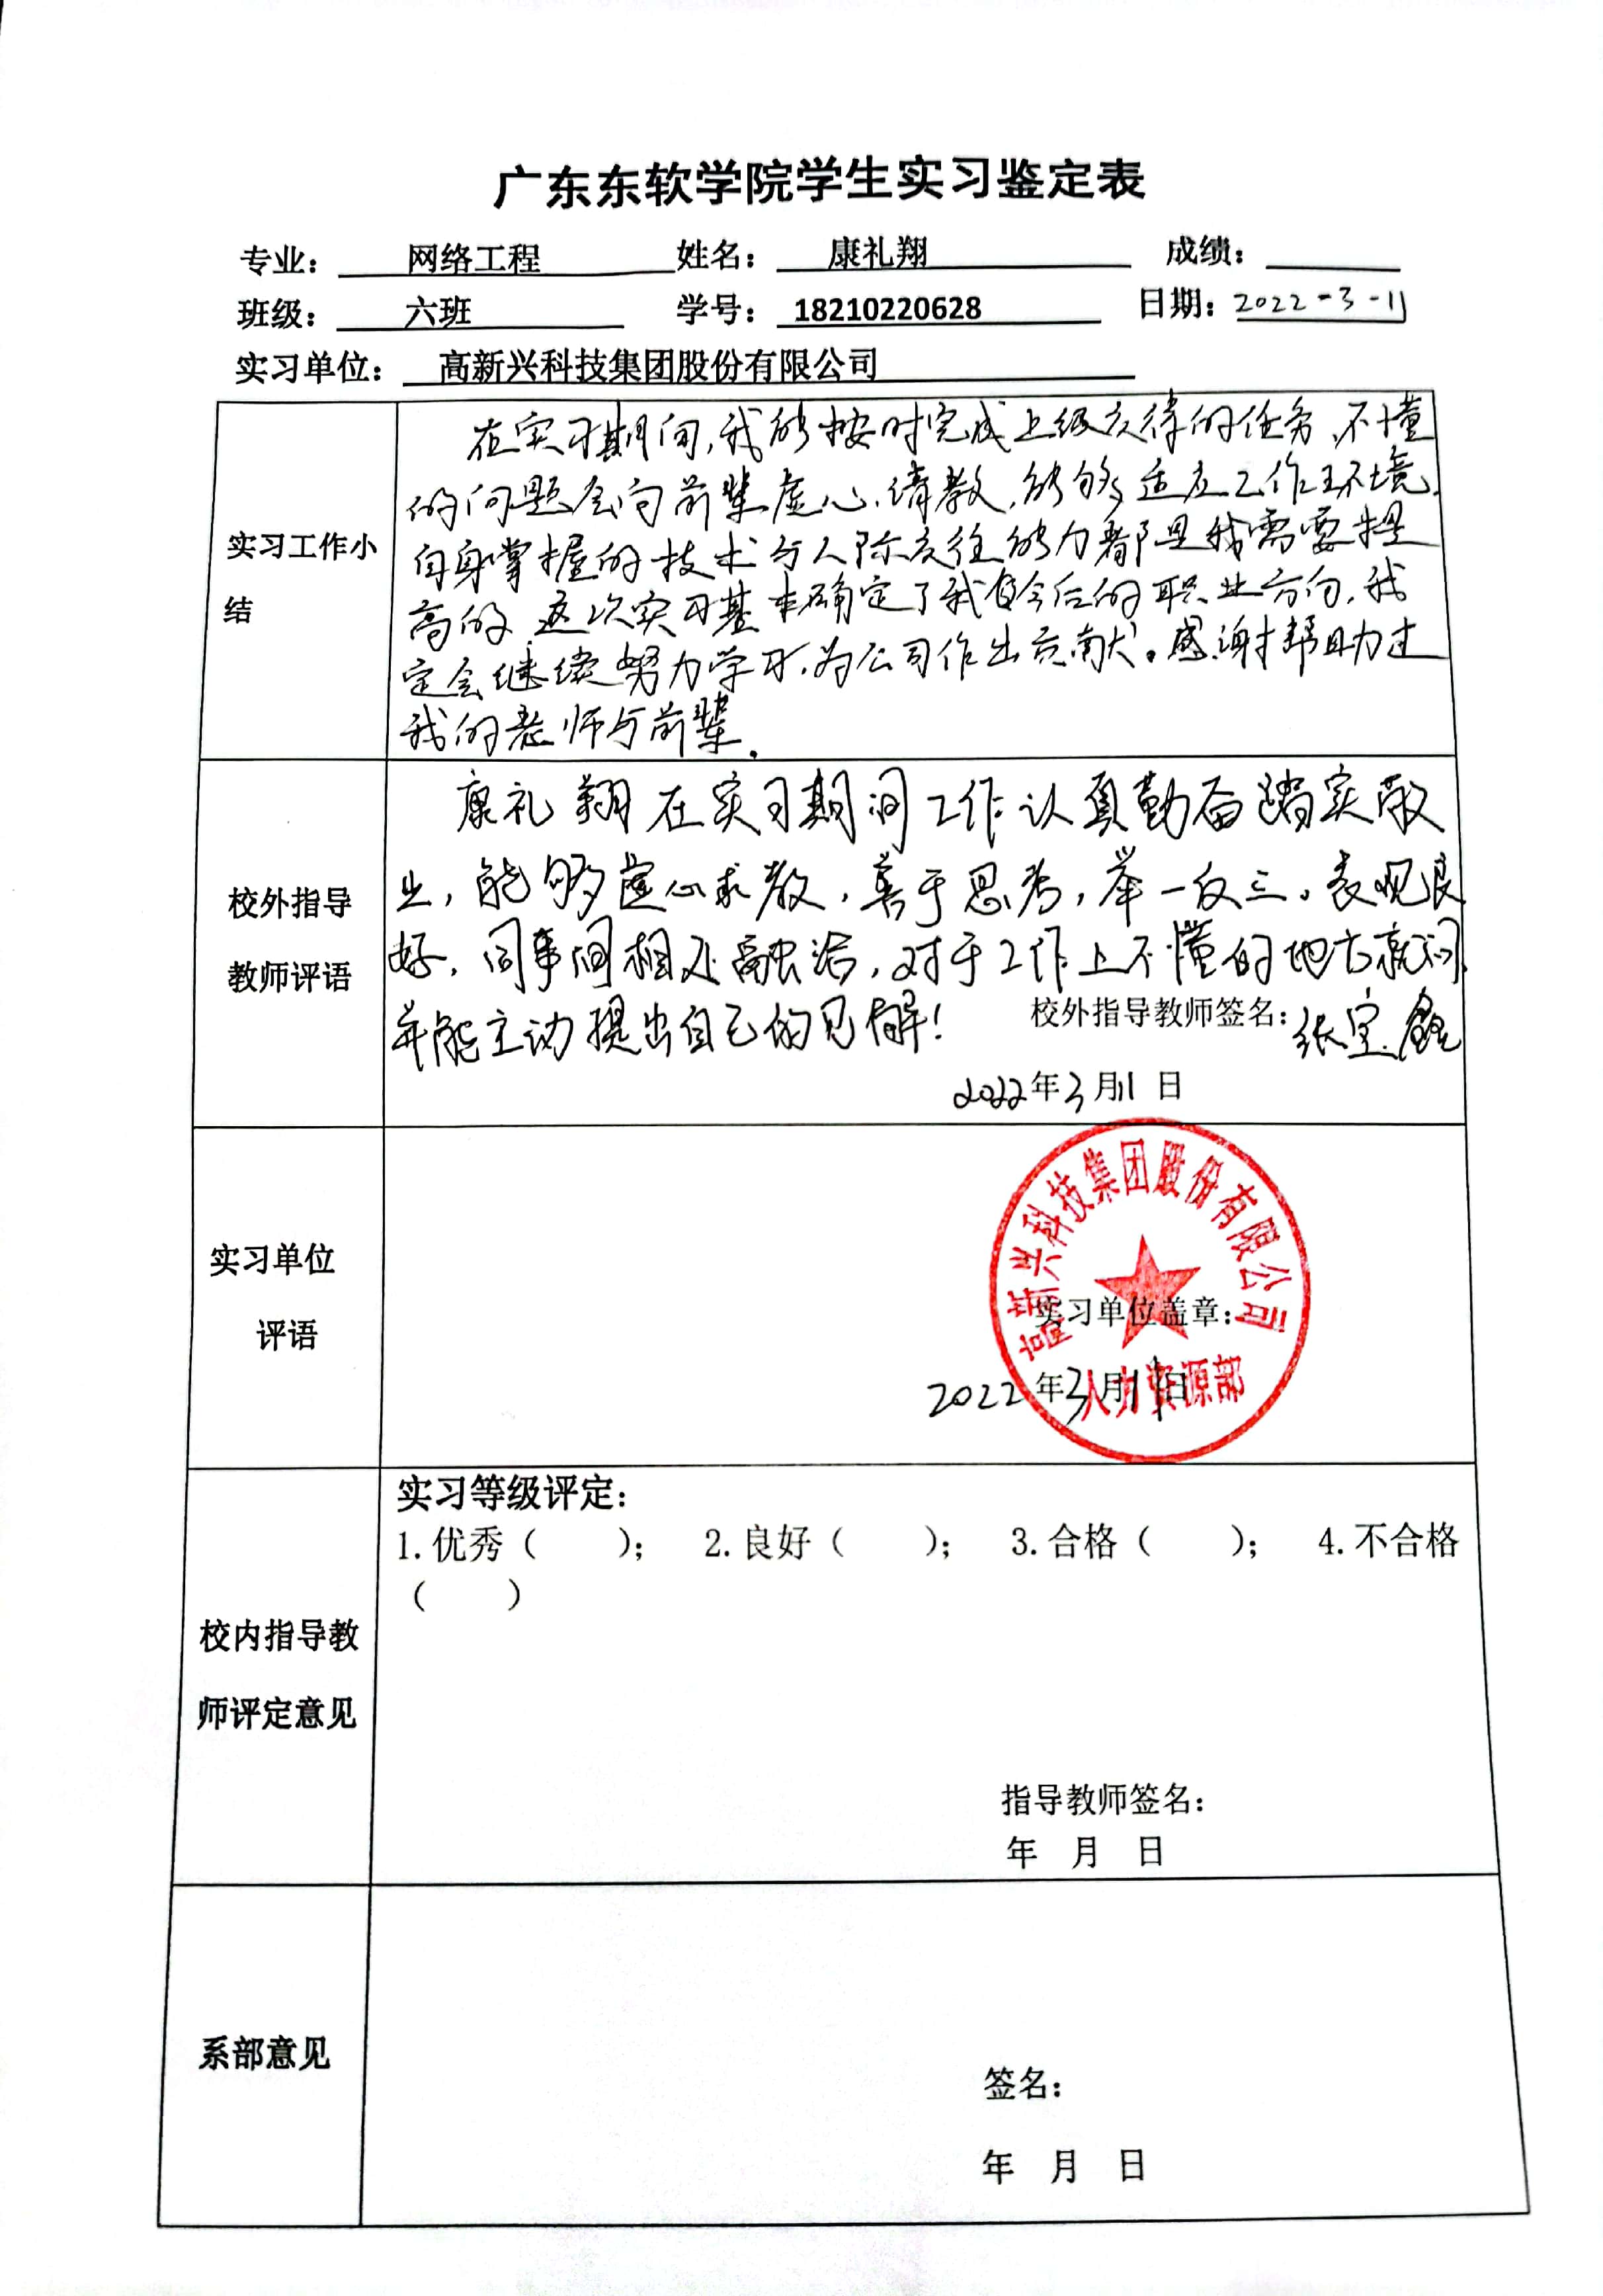 广东东软学院学生实习鉴定表
专业： 网络工程 姓名： 康礼翔 成绩：
班级： 六班 学号： 18210220628 日期：2022-3-11
实习单位： 高新兴科技集团股份有限公司
实习工作小
结
在实习期间，我能按时完成上级交待的任务，不懂
的问题会向前辈虚心请教，能够适应工作环境，
自身掌握的技术与人际交往能力都是我需要提
高的，这次实习基本确定了我今后的职业方向，我
定会继续努力学习，为公司作出贡献。感谢帮助过
我的老师与前辈。
校外指导
教师评语
康礼翔在实习期间工作认真勤奋踏实敬
业，能够虚心求教，善于思考，举一反三。表现良
好，同事间相处融洽，对于工作上不懂的地方就问，
并能主动提出自己的见解！
校外指导教师签名：张宝鑫
2022年3月11日
实习单位
评语
高新兴科技集团股份有限公司
实习单位盖章：
2022年3月11日
人力资源部
校内指导教
师评定意见
实习等级评定：
1.优秀（ ）； 2.良好（ ）； 3.合格（ ）； 4.不合格
（ ）
指导教师签名：
年 月 日
系部意见
签名：
年 月 日